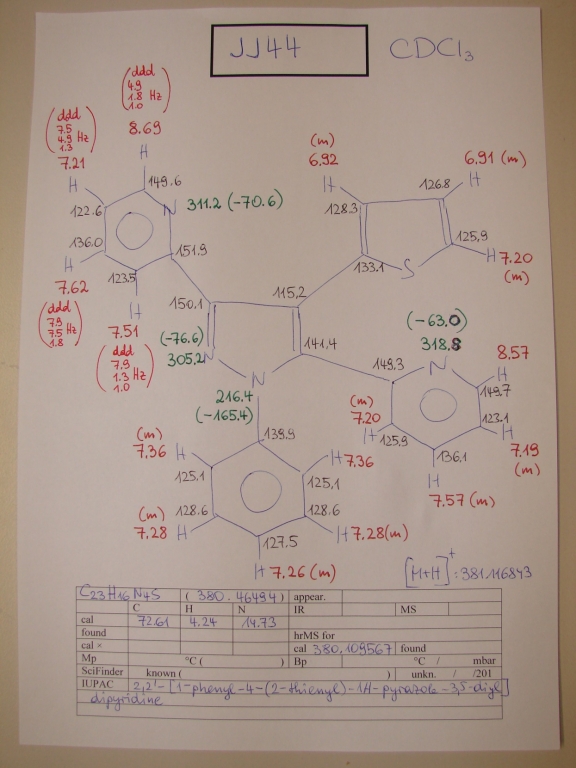 JJ44 CDCl3
ddd
4.9
1.8 Hz
1.0
8.69
H
ddd
7.5
4.9 Hz
1.3
7.21
H
149.6
122.6
N 311.2 (-70.6)
136.0
151.9
H
123.5
7.62
H
ddd
7.9
7.5 Hz
1.8
7.51
ddd
7.9
1.3 Hz
1.0
(m)
6.92
6.91 (m)
H
126.8
H
128.3
125,9
H 7.20
(m)
133.1
S
150.1
115,2
(-76.6)
305.2
N
141,4
N
216.4
(-165.4)
(-63.0)
318.8
N
149.3
8.57
H
149.7
(m)
7.20
H
125.9
123.1
H
7.19
(m)
136,1
H
7.57 (m)
139.9
(m)
7.36 H
H 7.36
125.1
125,1
(m)
128.6
128.6
7.28 H
H 7.28(m)
127.5
H 7.26 (m)
[M+H]+: 381.116843
C23H16N4S (380.46494) appear.
C H N IR MS
cal 72.61 4.24 14.73
found hrMS for
cal × cal 380.109567 found
Mp °C ( ) Bp °C / mbar
SciFinder known ( ) unkn. / /201
IUPAC 2,2'-[1-phenyl-4-(2-thienyl)-1H-pyrazole-3,5-diyl]
dipyridine